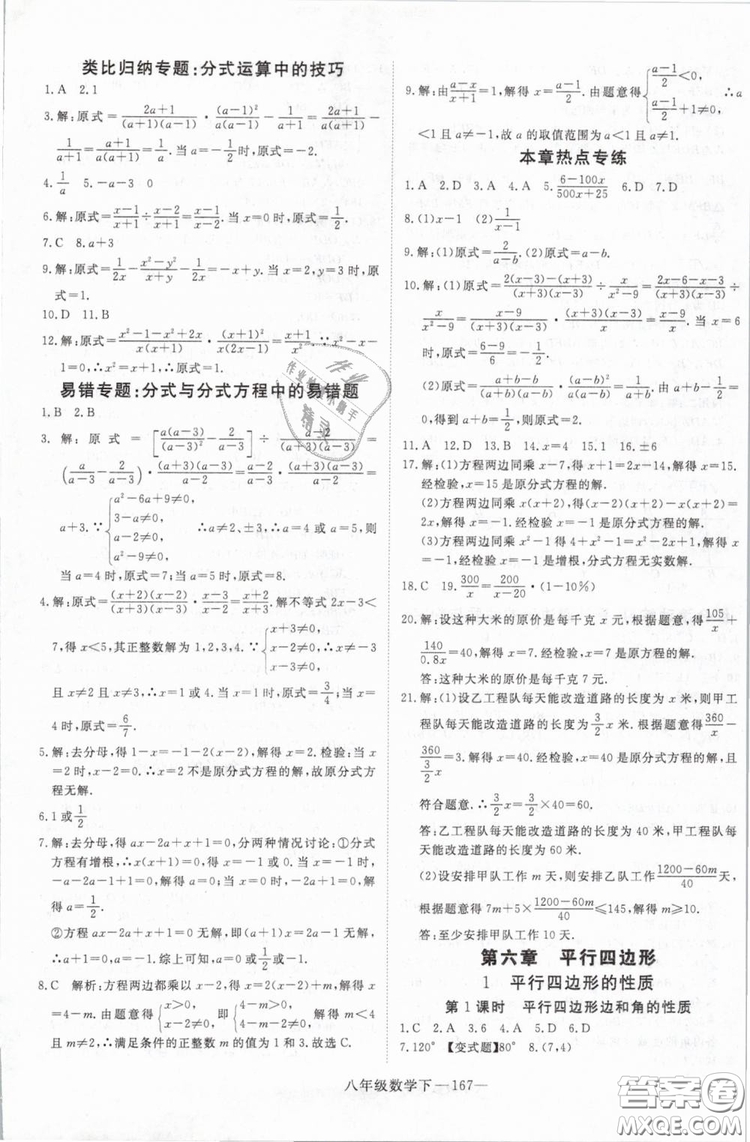 类比归纳专题:分式运算中的技巧
1.A 2.1
3.解:原式=\frac{2a+1}{(a+1)(a-1)}·\frac{(a-1)^2}{a(a-1)}-\frac{1}{a+1}=\frac{2a+1}{a(a+1)}-
\frac{1}{a+1}=\frac{a+1}{a(a+1)}=\frac{1}{a}.当a=-\frac{1}{2}时,原式=-2.
4.\frac{1}{a} 5.-a-3 0
6.解:原式=\frac{x-1}{x+1}÷\frac{x-2}{x+1}=\frac{x-1}{x-2}.当x=0时,原式=\frac{1}{2}.
7.C 8.a+3
9.解:原式=\frac{1}{2x}-\frac{x^2-y^2}{x+y}-\frac{1}{2x}=-x+y.当x=2,y=3时,原
式=1.
10.D 11.B
12.解:原式=\frac{x^2-1-x^2+2x}{x(x+1)}·\frac{(x+1)^2}{x(2x-1)}=\frac{x+1}{x^2}.∵x^2-x-
1=0,∴x^2=x+1,∴原式=1.
易错专题:分式与分式方程中的易错题
1.B 2.B
3.解:原式=[\frac{a(a-3)}{(a-3)^2}-\frac{2}{a-3}]÷\frac{a-2}{(a+3)(a-3)}=
(\frac{a}{a-3}-\frac{2}{a-3})·\frac{(a+3)(a-3)}{a-2}=\frac{a-2}{a-3}·\frac{(a+3)(a-3)}{a-2}=
a+3.∵{a^2-6a+9≠0, a-3≠0, a-2≠0, a^2-9≠0 ∴a≠2,±3,∴a=4或a=5,则
当a=4时,原式=7.当a=5时,原式=8.
4.解:原式=\frac{(x+2)(x-2)}{(x+3)(x-3)}·\frac{x-3}{x+2}=\frac{x-2}{x+3}.解不等式2x-3<
7,得x<5,其正整数解为1,2,3,4.∵{x+3≠0, x+2≠0, x-3≠0,
且x≠2且x≠3,∴x=1或x=4.当x=1时,原式=\frac{3}{4};当x=
4时,原式=\frac{6}{7}.
5.解:去分母,得1-x=-1-2(x-2).解得x=2.检验:当x
=2时,x-2=0.∴x=2不是原分式方程的解,故原分式方程
的解无解.
6.1或\frac{1}{2}
7.解:去分母,得ax-2a+x+1=0,分两种情况讨论:①分式
方程有增根,∴x(x+1)=0,得x=-1或0.当x=-1时,
-a-2a-1+1=0,解得a=0;当x=0时,-2a+1=0,解
得a=\frac{1}{2}.
②方程ax-2a+x+1=0无解,即(a+1)x=2a-1无解,
∴a+1=0,a=-1.综上可知,a=0或\frac{1}{2}或-1.
8.C 解析:方程两边都乘以x-2,得x=2(x-2)+m,解得x
=4-m.由题意得{x>0, x-2≠0,即{4-m>0, 4-m-2≠0,解得m<4且m
≠2.∴满足条件的正整数m的值为1和3.故选C.
9.解:由\frac{a-x}{x+1}=1,解得x=\frac{a-1}{2}.由题意得{\frac{a-1}{2}<0, \frac{a-1}{2}+1≠0, ∴a
<1且a≠-1,故a的取值范围为a<1且a≠-1.
本章热点专练
1.A 2.D 3.A 4.A 5.\frac{6-100x}{500x+25} 6.D 7.D
8.(1)x-1 (2)\frac{1}{x-1}
9.解:(1)原式=\frac{2}{a}.(2)原式=\frac{a}{a-b}.
10.解:(1)原式=\frac{2(x-3)-(x+3)}{(x+3)(x-3)}÷\frac{x}{x^2-9}=\frac{2x-6-x-3}{(x+3)(x-3)}÷
\frac{x}{x^2-9}=\frac{x-9}{(x+3)(x-3)}·\frac{(x+3)(x-3)}{x}=\frac{x-9}{x}.当x=6
时,原式=\frac{6-9}{6}=-\frac{1}{2}.
(2)原式=\frac{a+b-b}{(a+b)(a-b)}·\frac{(a+b)(a-b)}{a(a+b)}=\frac{1}{a+b}.由a+b-2
=0,得到a+b=2,则原式=\frac{1}{a+b}=\frac{1}{2}.
11.A 12.D 13.B 14.4 15.-1 16.±6
17.解:(1)方程两边同乘x-7,得x+1=2x-14,解得x=15.
经检验,x=15是原分式方程的解.
(2)方程两边同乘x(x+2),得(x-2)(x+2)-x(x+2)=
2x,解得x=-1.经检验x=-1是原分式方程的解.
(3)方程两边同乘x^2-1得4+x^2-1=(x-1)^2,解得x=
-1,经检验x=-1是增根,分式方程无实数解.
18.C 19.\frac{300}{x}=\frac{200}{x-20}·(1-10%)
20.解:设这种大米的原价是每千克x元,根据题意,得\frac{105}{x}+
\frac{140}{0.8x}=40.解得x=7.经检验,x=7是原方程的解.
答:这种大米的原价是每千克7元.
21.解:(1)设乙工程队每天能改造道路的长度为x米,则甲工
程队每天能改造道路的长度为\frac{3}{2}x米,根据题意得\frac{360}{x}-
\frac{360}{\frac{3}{2}x}=3.解得x=40.经检验,x=40是原分式方程的解,且
符合题意.∴\frac{3}{2}x=\frac{3}{2}×40=60.
答:乙工程队每天能改造道路的长度为40米,甲工程队每
天能改造道路的长度为60米.
(2)设安排甲队工作m天,则安排乙队工作\frac{1200-60m}{40}天,
根据题意得7m+5×\frac{1200-60m}{40}≤145,解得m≥10.
答:至少安排甲队工作10天.
第六章 平行四边形
1 平行四边形的性质
第1课时 平行四边形边和角的性质
1.C 2.A 3.6 4.A 5.D 6.D
7.120° 【变式题】80° 8.(7,4)
八年级数学下—167—
答案圈
MXQE.COM